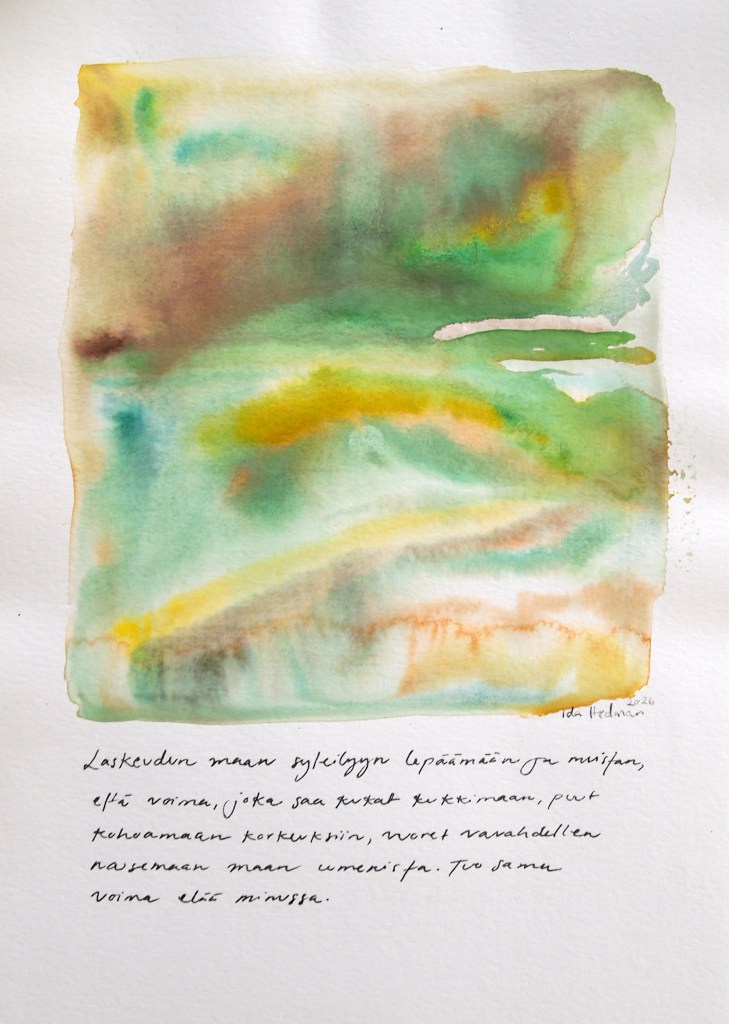 2026
Ida Hedman
Laskeudun maan syleilyyn lepäämään ja muistan,
että voima, joka saa kukat kukkimaan, puut
kohoamaan korkeuksiin, vuoret vavahdellen
nousemaan maan uumenista. Tuo sama
voima elää minussa.